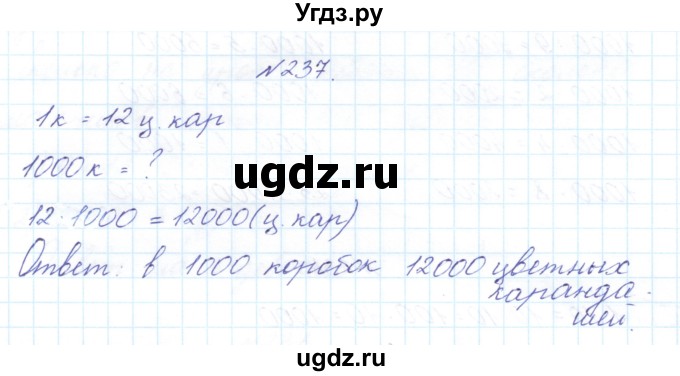 Угдз.ру
№237.
1к = 12 ц. кар
1000к = ?
ugdz.ru
12·1000 = 12000 (ц. кар)
Ответ: в 1000 коробок 12000 цветных
каранда-
шей.
ugdz.ru